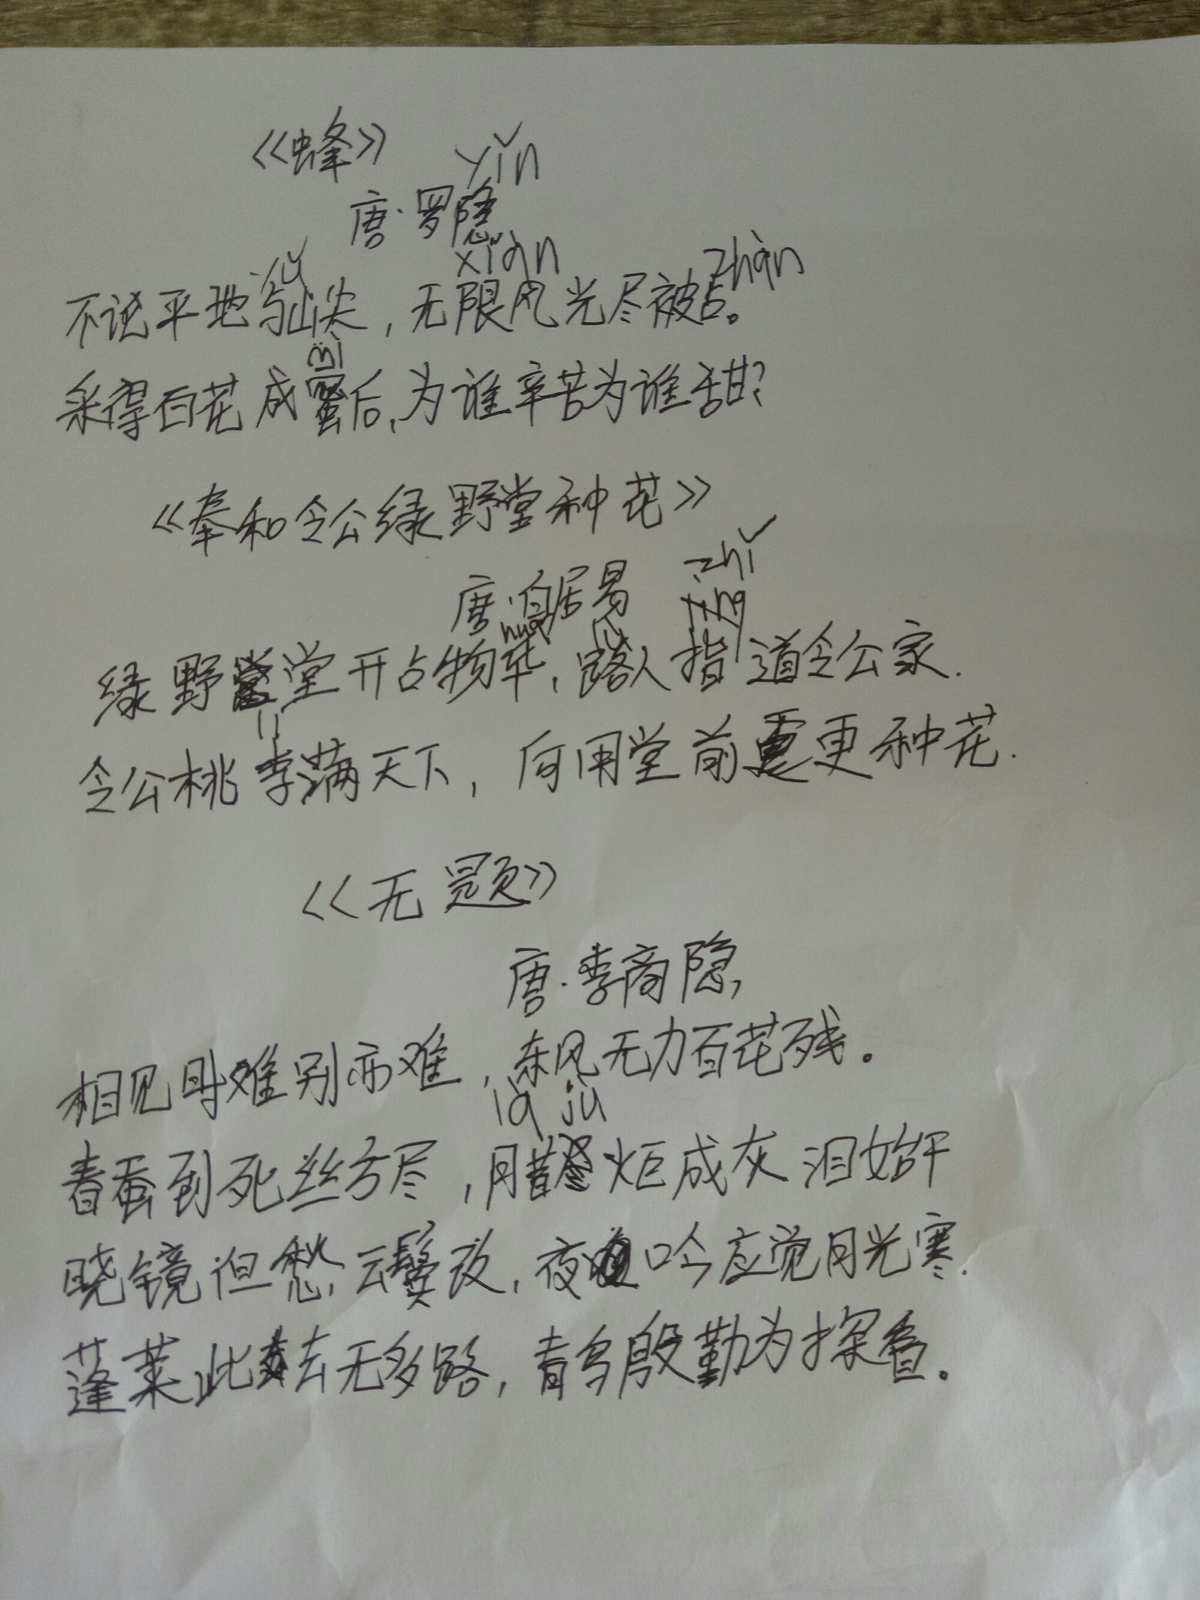 《蜂》
yǐn
唐·罗隐
yǔ xiàn zhàn
不论平地与山尖，无限风光尽被占。
mì
采得百花成蜜后，为谁辛苦为谁甜？
《奉和令公绿野堂种花》
zhǐ
唐·白居易
huá lù
绿野堂开占物华，路人指道令公家.
lǐ
令公桃李满天下，何用堂前更种花.
《无题》
唐·李商隐,
相见时难别亦难，东风无力百花残。
là jù
春蚕到死丝方尽，腊炬成灰泪始干
晓镜但愁云鬓改，夜吟应觉月光寒.
蓬莱此去无多路，青鸟殷勤为探看。